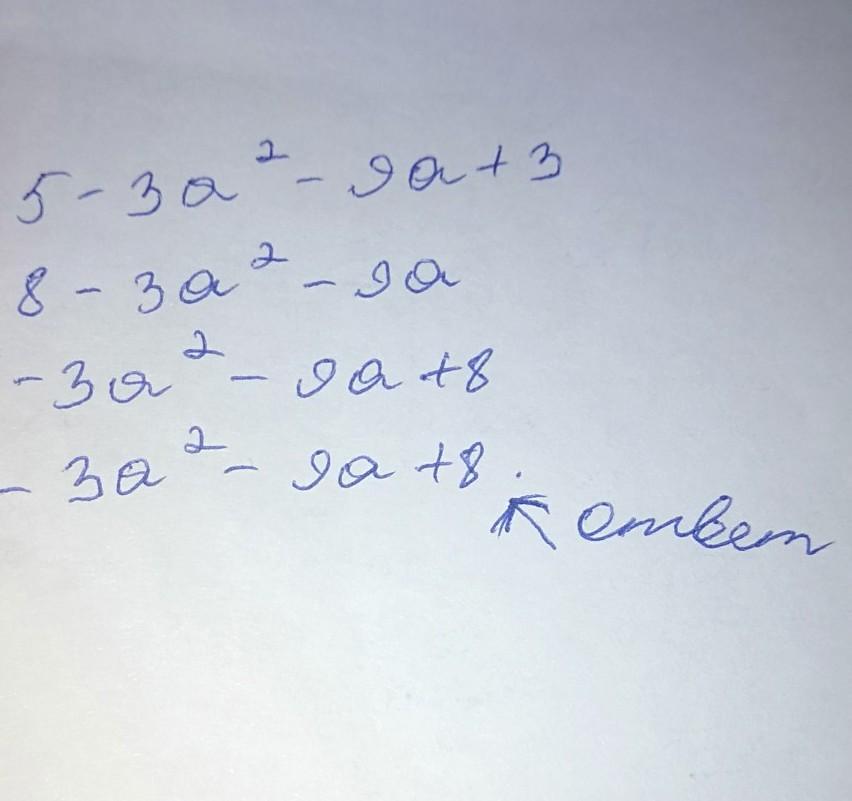 5 - 3a² - 9a + 3
8 - 3a² - 9a
- 3a² - 9a + 8
- 3a² - 9a + 8.
↖ ответ